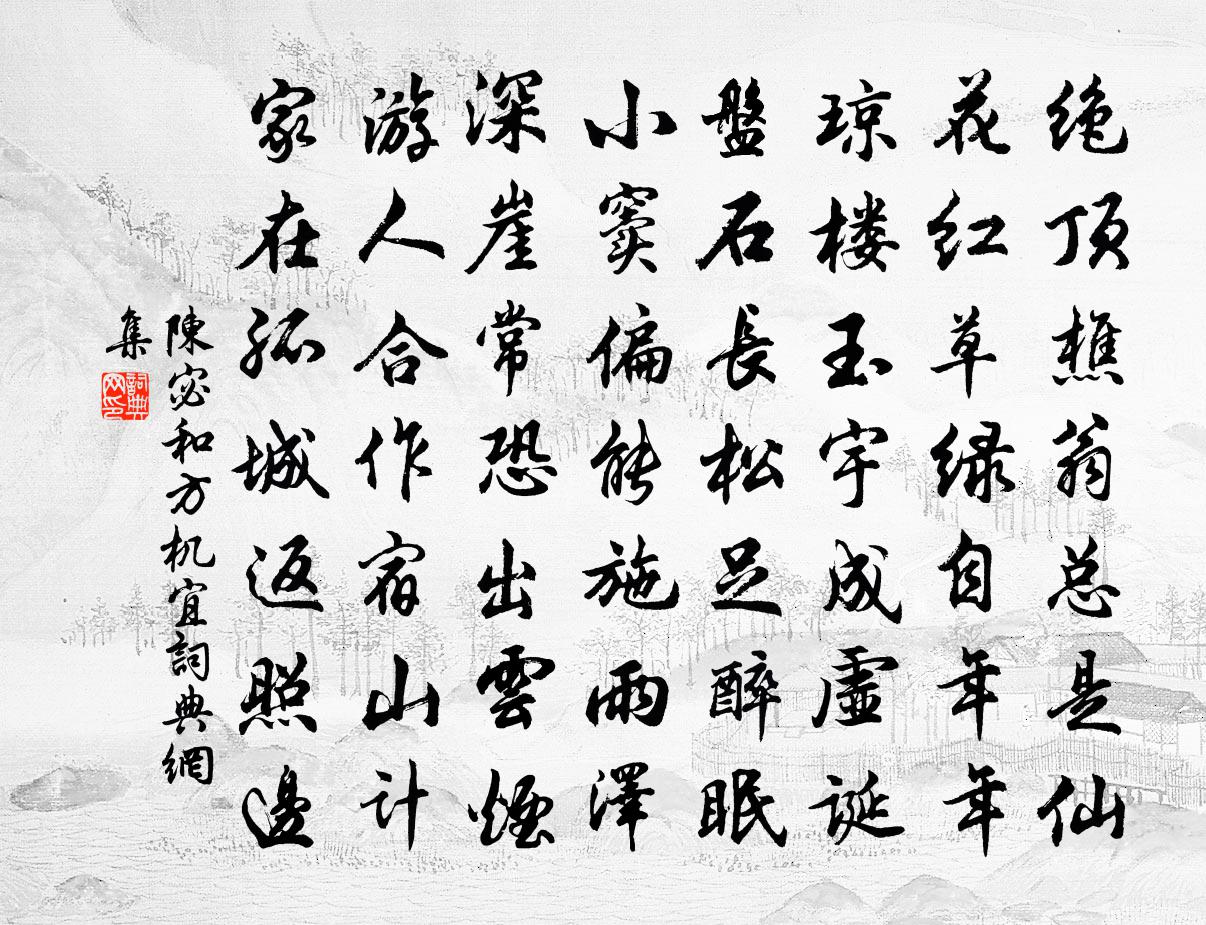 绝顶樵翁总是仙
花红草绿自年年
琼楼玉宇成虚诞
盤石長松足醉眠
小窦偏能施雨澤
深崖常恐出雲煙
游人合作宿山计
家在孤城返照邊
陳宓和方机宜詞典網
集
詞典
网印